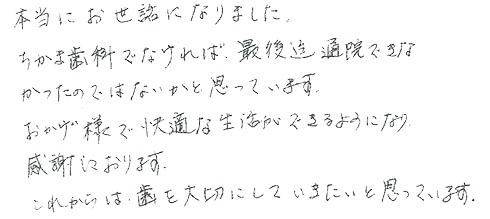 本当にお世話になりました。
ちかま歯科でなければ、最後迄通院できな
かったのではないかと思っています。
おかげ様で快適な生活ができるようになり
感謝しております。
これからは、歯を大切にしていきたいと思っています。